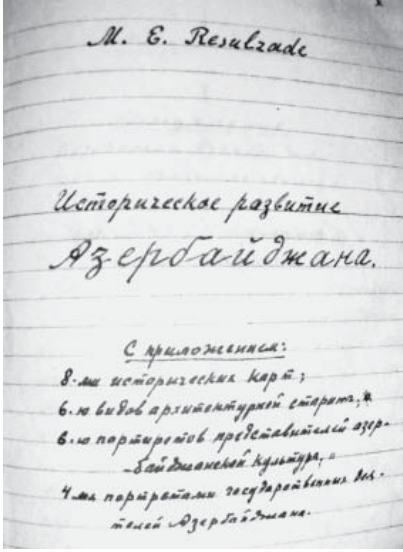 M. E. Resulzade
Историческое развитие
Азербайджана.
С приложением:
8-ми исторических карт;
6-ю видов архитектурной старины, и
6-ю портретов представителей азер-
-байджанской культуры, и
4-мя портретами государственных дея-
телей Азербайджана.